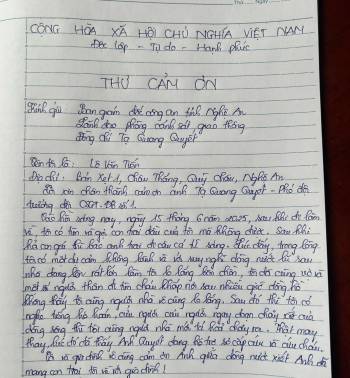 CỘNG HÒA XÃ HỘI CHỦ NGHĨA VIỆT NAM
Độc lập - Tự do - Hạnh phúc
THƯ CẢM ƠN
Kính gửi: Ban giám đốc công an tỉnh Nghệ An
Lãnh đạo phòng cảnh sát giao thông
Đồng chí Tạ Quang Quyết
Tên tôi là: Lê Văn Tiến
Địa chỉ: Bản Xét 1, Châu Thắng, Quỳ Châu, Nghệ An
chân thành cảm ơn anh Tạ Quang Quyết - Phó đội
trưởng đội CSGT số 1.
Vào sáng nay, ngày 15 tháng 6 năm 2025, sau khi đi làm
về tôi có tìm và gọi con trai đầu của tôi mà không được. Sau khi
hỏi con gái thì bảo anh trai đi câu cá từ sáng. Lúc đấy, trong lòng
tôi có một dự cảm không lành và và suy nghĩ dòng nước lũ sau
nhà đang lớn rất lớn làm tôi lo lắng bồn chồn, tôi đã cùng vợ và
một số người thân đi tìm cháu khắp nơi sau nhiều giờ đồng hồ
không thấy tôi cùng người nhà vô cùng lo lắng. Sau đó thì tôi có
nghe tiếng hô hoán, cứu người cứu người, ngay đoạn chảy xiết của
dòng sông thì tôi cùng người nhà mới tá hỏa chạy ra. Thật may
thay, lúc đó đã thấy anh Quyết đang hỗ trợ sơ cấp cứu và cứu cháu.
và gia đình vô cùng cảm ơn Anh giữa dòng nước xiết Anh đã
mang con trai tôi về với gia đình!